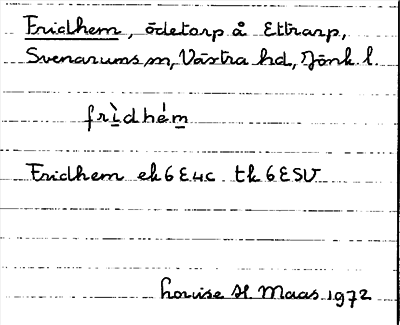 Fridhem, ödetorp å Ettrarp,
Svenarums sn, Västra hd, Jönk. l.
frìdhém
Fridhem ek 6E4c tk 6E5V
Louise H. Maas 1972